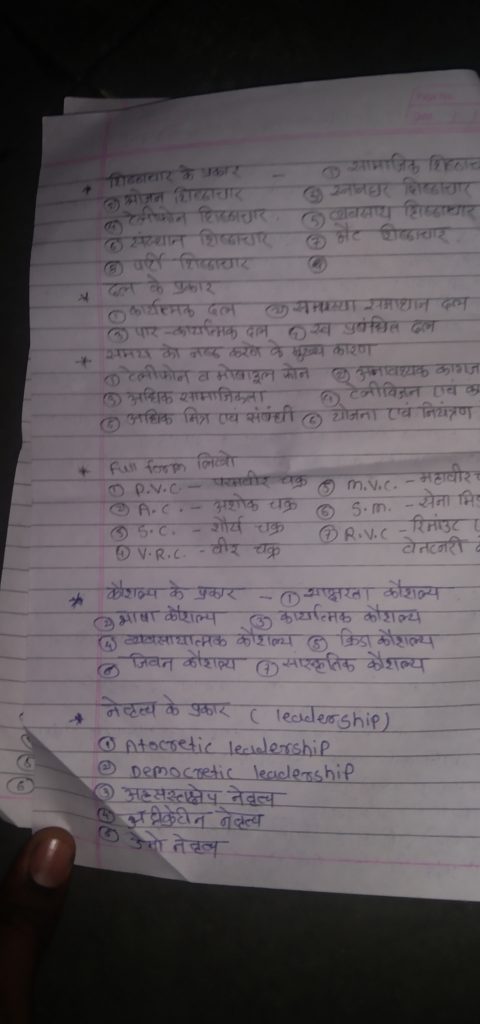 * शिष्टाचार के प्रकार - ① सामाजिक
② भोजन शिष्टाचार ③ स्नानघर शिष्टाचार
④ टेलीफोन शिष्टाचार ⑤ व्यवसाय शिष्टाचार
⑥ संस्थान शिष्टाचार ⑦ भेंट शिष्टाचार
⑧ पार्टी शिष्टाचार ⑨
* दल के प्रकार
① कार्यात्मक दल ② समस्या समाधान दल
③ पार-कार्यात्मक दल ④ स्व प्रबंधित दल
* समय को नष्ट करने के मुख्य कारण
① टेलीफोन व मोबाइल फोन ② अनावश्यक
③ अधिक सामाजिकता ④ टेलीविजन एवं
⑤ अधिक मित्र एवं संबंधी ⑥ योजना एवं नियंत्रण
* Full form लिखो
① P.V.C - परमवीर चक्र ⑤ M.V.C. -
② A.C. - अशोक चक्र ⑥ S.M. - सेना
③ S.C. - शौर्य चक्र ⑦ R.V.C -
④ V.R.C. - वीर चक्र
* कौशल्य के प्रकार - ① साक्षरता कौशल्य
② भाषा कौशल्य ③ कार्यात्मक कौशल्य
④ व्यवसायात्मक कौशल्य ⑤ क्रिडा कौशल्य
⑥ जिवन कौशल्य ⑦ सांस्कृतिक कौशल्य
* नेतृत्व के प्रकार (leadership)
① Atocretic leadership
② Democretic leadership
③ नेतृत्व
④ नेतृत्व
⑤ नेतृत्व
⑤
⑥